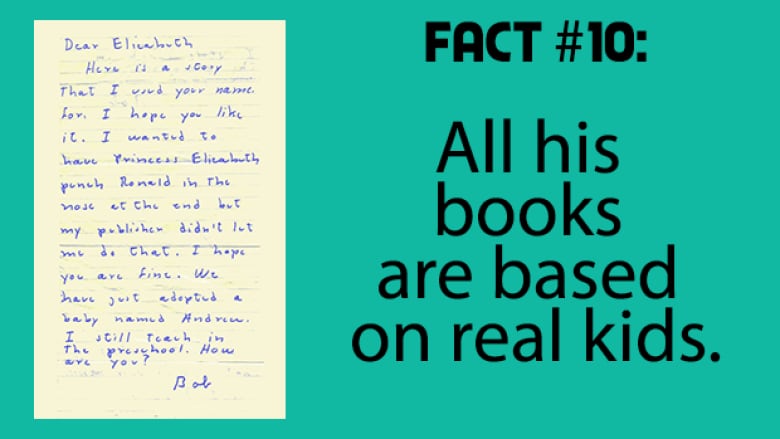 Dear Elizabeth
Here is a story
That I used your name
for. I hope you like
it. I wanted to
have Princess Elizabeth
punch Ronald in the
nose at the end but
my publisher didn't let
me do that. I hope
you are fine. We
have just adopted a
baby named Andrew.
I still teach in
the preschool. How
are you?
Bob
FACT #10:
All his
books
are based
on real kids.